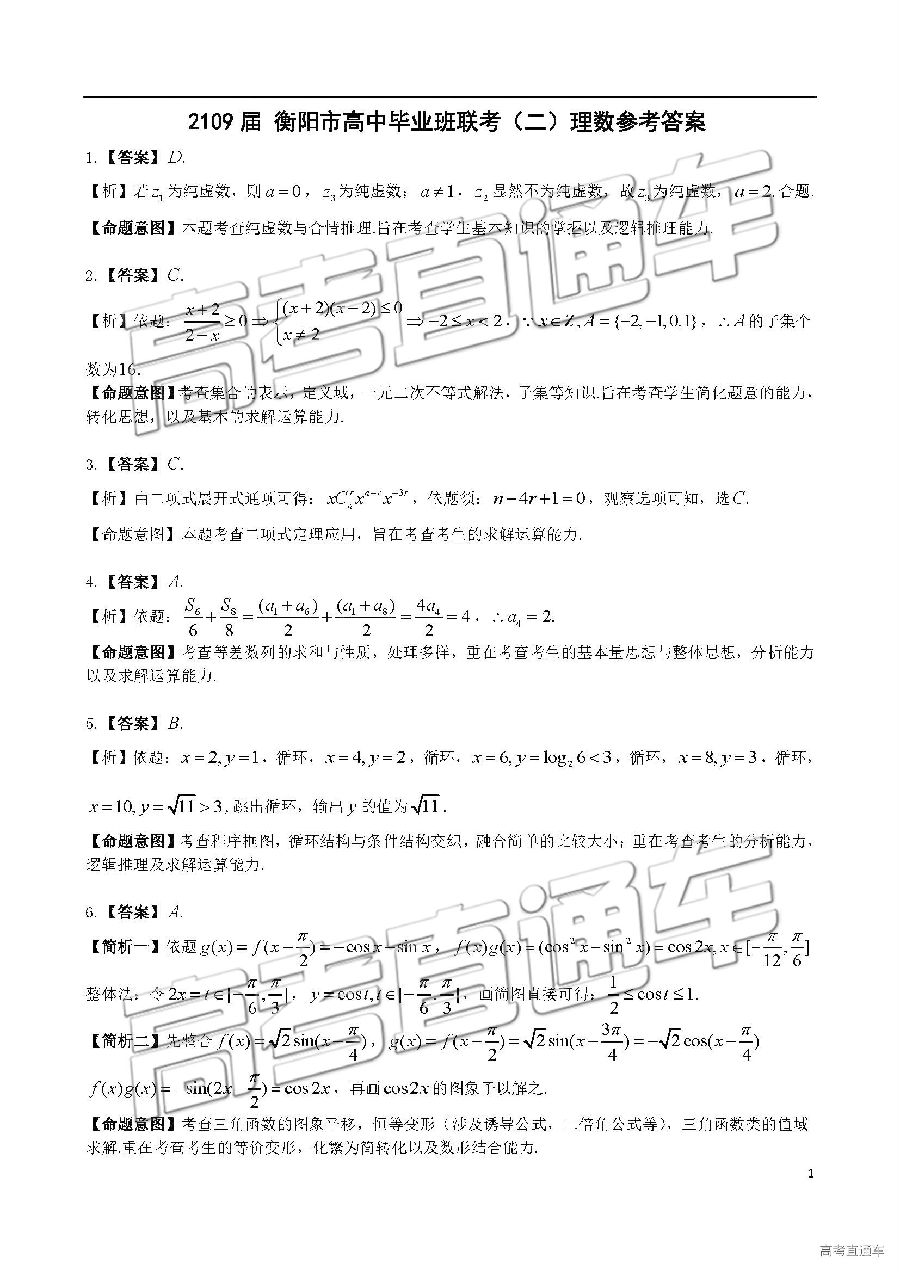 2109届 衡阳市高中毕业班联考（二）理数参考答案
1.【答案】D.
【析】若z₁为纯虚数，则a=0，z₃为纯虚数；a≠1，z₂显然不为纯虚数，故z₃为纯虚数，a=2.合题.
【命题意图】本题考查纯虚数与合情推理.旨在考查学生基本知识的掌握以及逻辑推理能力.
2.【答案】C.
【析】依题：(x+2)/(2−x)≥0⇒{(x+2)(x−2)≤0 x≠2⇒−2≤x<2，∵x∈Z,A={−2,−1,0.1}，∴A的子集个
数为16.
【命题意图】考查集合的表示，定义域，一元二次不等式解法，子集等知识.旨在考查学生简化题意的能力，
转化思想，以及基本的求解运算能力.
3.【答案】C.
【析】由二项式展开式通项可得：xCₙʳxⁿ⁻ʳx⁻³ʳ，依题须：n−4r+1=0，观察选项可知，选C.
【命题意图】本题考查二项式定理应用，旨在考查考生的求解运算能力.
4.【答案】A.
【析】依题：S₆/6+S₈/8=(a₁+a₆)/2+(a₁+a₈)/2=4a₄/2=4，∴a₄=2.
【命题意图】考查等差数列的求和与性质，处理多样，重在考查考生的基本量思想与整体思想，分析能力
以及求解运算能力.
5.【答案】B.
【析】依题：x=2,y=1，循环，x=4,y=2，循环，x=6,y=log₂6<3，循环，x=8,y=3，循环，
x=10,y=√11>3,跳出循环，输出y的值为√11.
【命题意图】考查程序框图，循环结构与条件结构交织，融合简单的比较大小；重在考查考生的分析能力，
逻辑推理及求解运算能力.
6.【答案】A.
【简析一】依题g(x)=f(x−π/2)=−cosx−sinx，f(x)g(x)=(cos²x−sin²x)=cos2x,x∈[−π/12,π/6]
整体法：令2x=t∈[−π/6,π/3]，y=cost,t∈[−π/6,π/3]，画简图直接可得：1/2≤cost≤1.
【简析二】先整合f(x)=√2sin(x−π/4)，g(x)=f(x−π/2)=√2sin(x−3π/4)=−√2cos(x−π/4)
f(x)g(x)=−sin(2x−π/2)=cos2x，再画cos2x的图象予以解之.
【命题意图】考查三角函数的图象平移，恒等变形（涉及诱导公式，二倍角公式等），三角函数类的值域
求解.重在考查考生的等价变形，化繁为简转化以及数形结合能力.
1
高考直通车
高考直通车
高考直通车